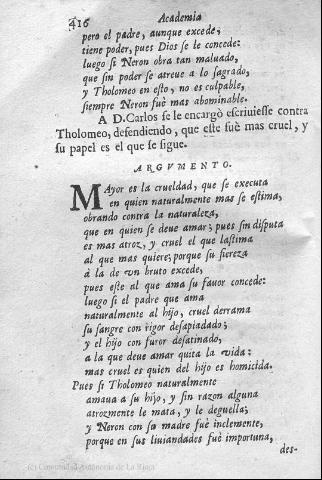 416 Academia
pero el padre, aunque excede;
tiene poder, pues Dios se le concede:
luego si Neron obra tan maluado,
que sin poder se atreue a lo sagrado,
y Tholomeo en esto, no es culpable,
siempre Neron fuè mas abominable.
A D. Carlos se le encargò escriuiesse contra
Tholomeo, defendiendo, que este fuè mas cruel, y
su papel es el que se sigue.
ARGVMENTO.
MAyor es la crueldad, que se executa
en quien naturalmente mas se estima,
obrando contra la naturaleza,
que en quien se deue amar; pues sin disputa
es mas atroz, y cruel el que lastima
al que mas quiere; porque su fiereza
à la de vn bruto excede,
pues este al que ama su fauor concede:
luego si el padre que ama
naturalmente al hijo, cruel derrama
su sangre con rigor desapiadado;
y el hijo con furor desatinado,
a la que deue amar quita la vida:
mas cruel es quien del hijo es homicida.
Pues si Tholomeo naturalmente
amaua a su hijo, y sin razon alguna
atrozmente le mata, y le deguella;
y Neron con su madre fuè inclemente,
porque en sus liuiandades fuè importuna,
des-
(c) Comunidad Autónoma de La Rioja